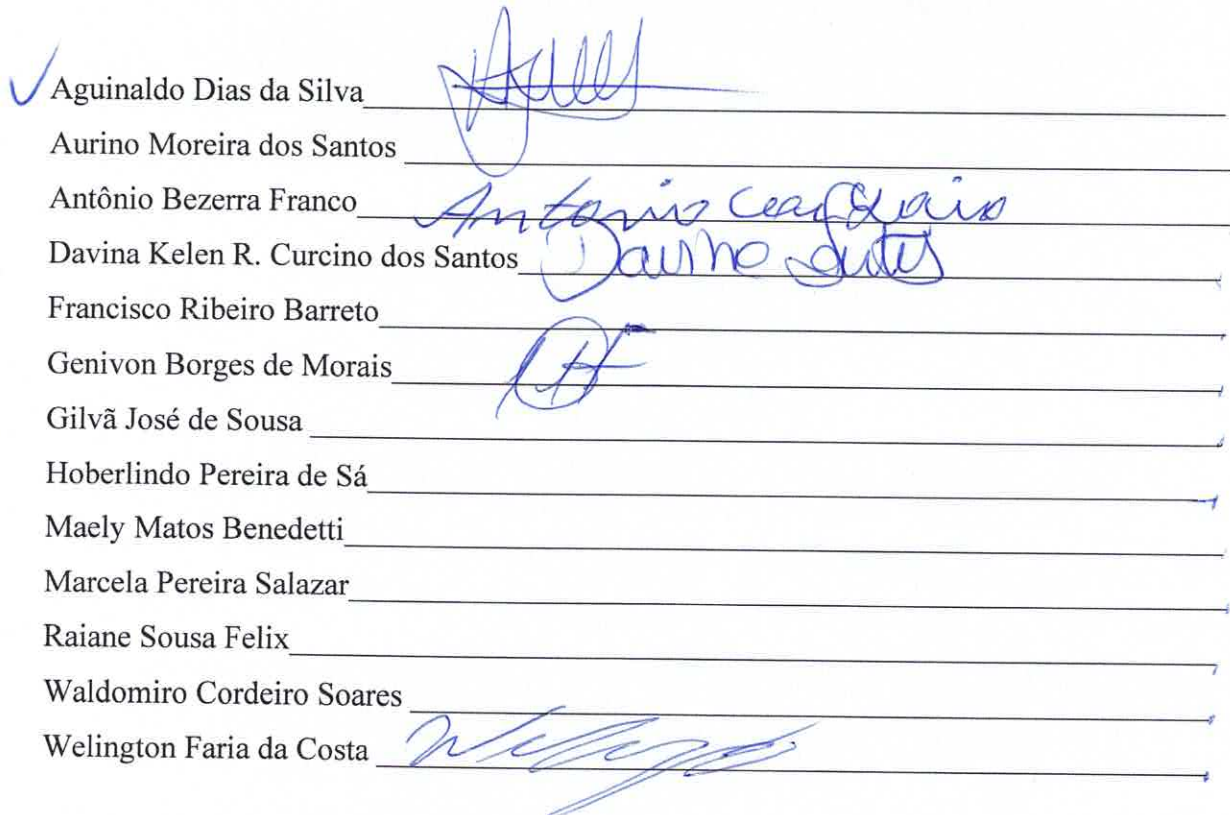 Aguinaldo Dias da Silva
Aurino Moreira dos Santos
Antônio Bezerra Franco Antonio
Davina Kelen R. Curcino dos Santos
Francisco Ribeiro Barreto
Genivon Borges de Morais
Gilvã José de Sousa
Hoberlindo Pereira de Sá
Maely Matos Benedetti
Marcela Pereira Salazar
Raiane Sousa Felix
Waldomiro Cordeiro Soares
Welington Faria da Costa